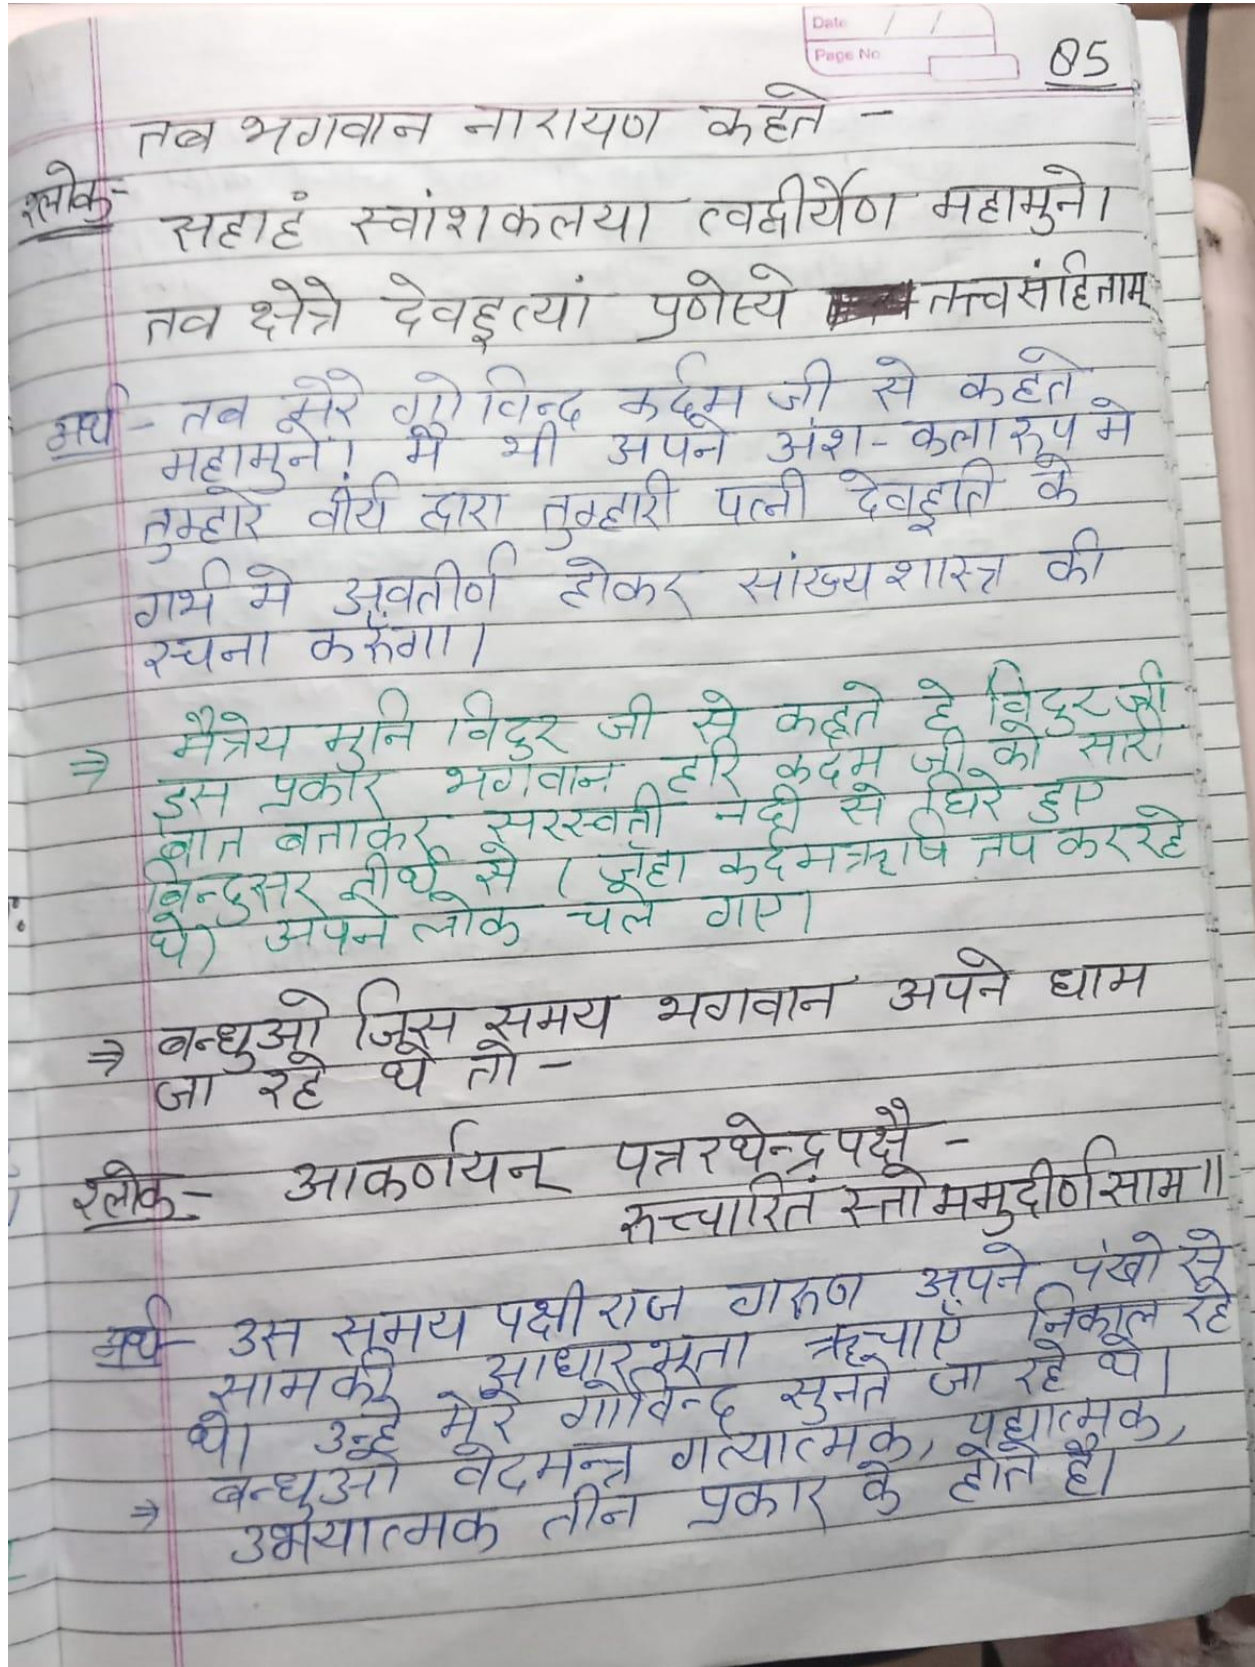 Date / /
Page No
05
तब भगवान नारायण कहते -
श्लोक- सहाहं स्वांशकलया त्वद्वीर्येण महामुने।
तव क्षेत्रे देवहुत्यां प्रणेस्ये तत्त्वसंहिताम्
अर्थ - तब मेरे गोविन्द कर्दम जी से कहते
महामुने। मै भी अपने अंश-कला रुप मे
तुम्हारे वीर्य द्वारा तुम्हारी पत्नी देवहूति के
गर्भ मे अवतीर्ण होकर सांख्यशास्त्र की
रचना करुँगा।
⇒ मैत्रेय मुनि विदुर जी से कहते हे विदुर जी
इस प्रकार भगवान हरि कर्दम जी को सारी
बात बताकर सरस्वती नदी से घिरे हुए
बिन्दुसर तीर्थ से (जँहा कर्दमऋषि तप कर रहे
थे) अपने लोक चले गए।
⇒ बन्धुओ जिस समय भगवान अपने धाम
जा रहे थे तो -
श्लोक- आकर्णयन् पत्ररथेन्द्रपक्षै -
रुच्चारितं स्तोममुदीर्णसाम॥
अर्थ- उस समय पक्षीराज गरुण अपने पंखो से
सामकी आधारभूता ऋचाएँ निकाल रहे
थे। उन्हे मेरे गोविन्द सुनते जा रहे थे।
⇒ बन्धुओ वेदमन्त्र गत्यात्मक, पद्यात्मक,
उभयात्मक तीन प्रकार के होते है।